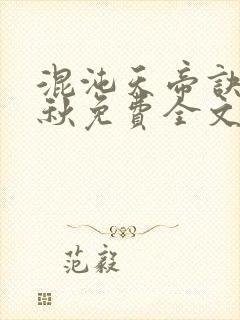 混沌天帝訣
秋免費全文
范毅